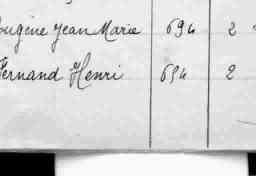 ougène Jean Marie 694 2
Fernand Henri 694 2